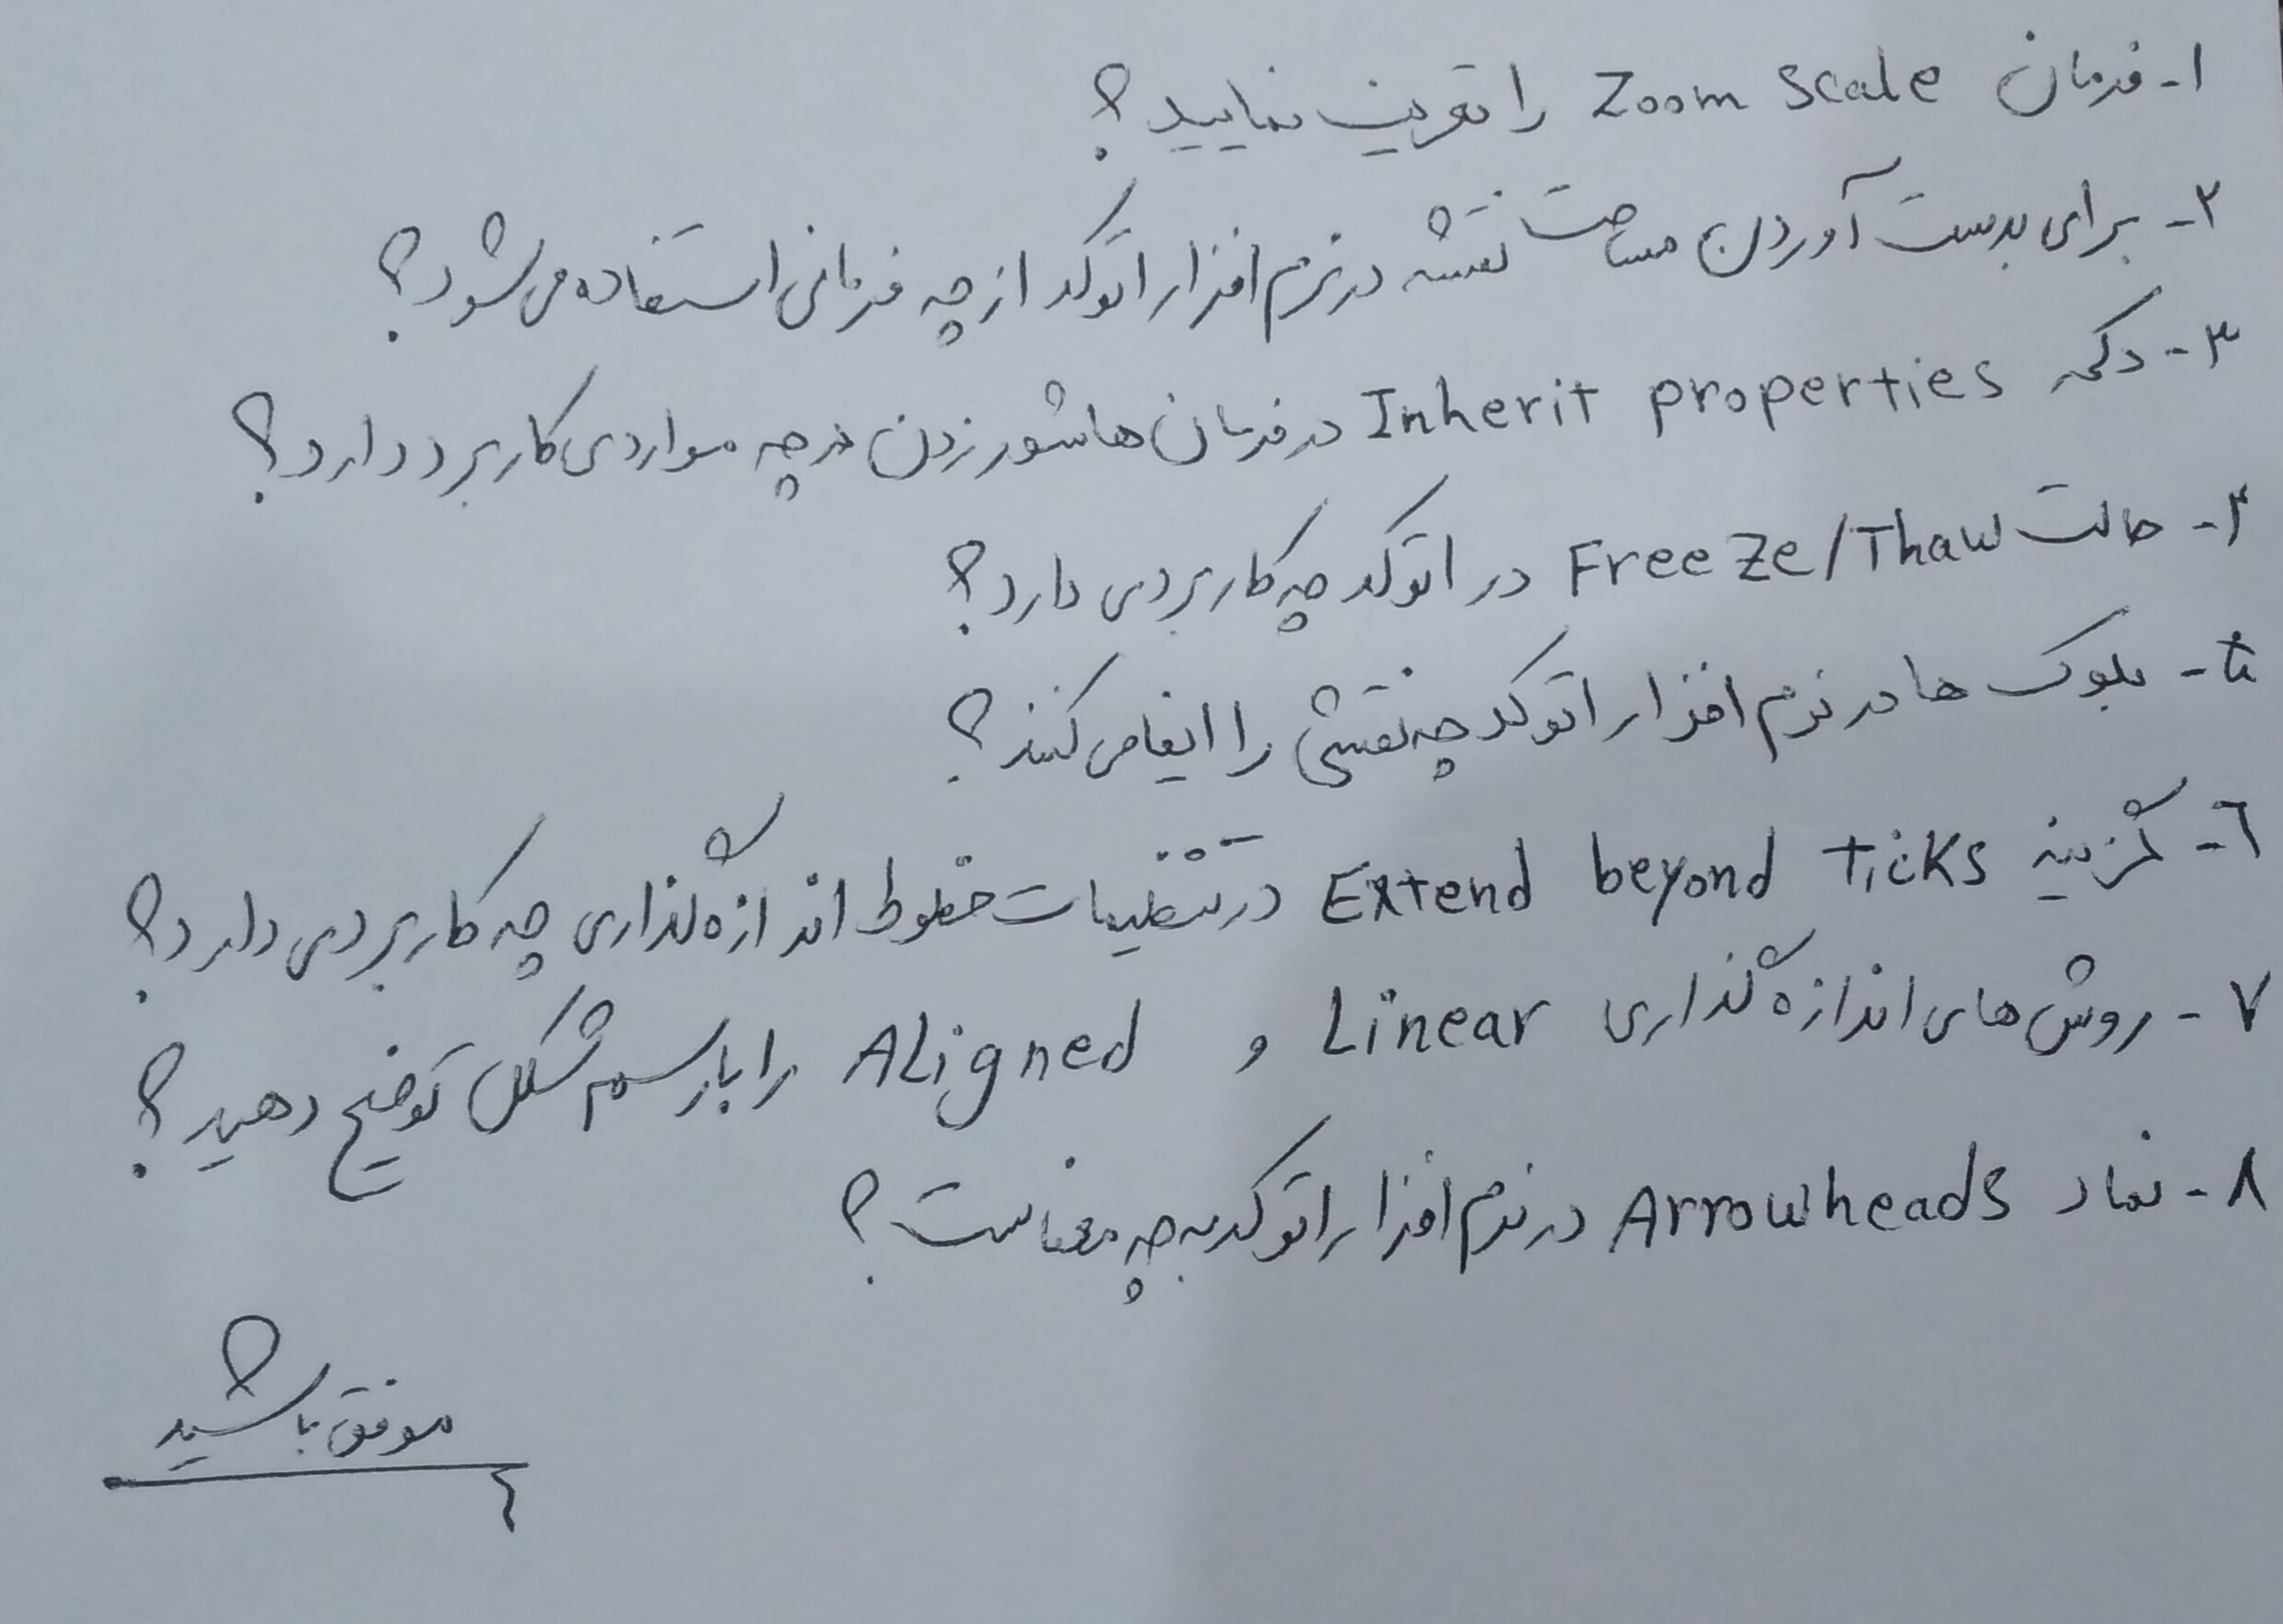 ۱- فرمان Zoom Scale را تعریف نمایید؟
۲- برای بدست آوردن مساحت نقشه در نرم افزار اتوکد از چه فرمانی استفاده می شود؟
۳- دکمه Inherit properties در فرمان هاشور زدن در چه مواردی کاربرد دارد؟
۴- حالت Freeze/Thaw در اتوکد چه کاربردی دارد؟
۵- بلوک ها در نرم افزار اتوکد چه نقشی را ایفا می کنند؟
۶- گزینه Extend beyond ticks در تنظیمات خطوط اندازه گذاری چه کاربردی دارد؟
۷- روش های اندازه گذاری Linear و ALigned را با رسم شکل توضیح دهید؟
۸- نماد Arrowheads در نرم افزار اتوکد به چه معناست؟
موفق باشید